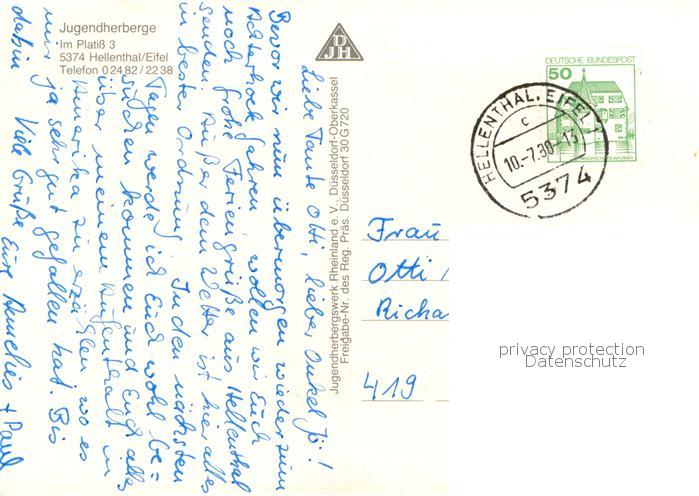 Jugendherberge
Im Platiß 3
5374 Hellenthal/Eifel
Telefon 0 24 82 / 22 38
DJH
DEUTSCHE BUNDESPOST
50
HELLENTHAL, EIFEL 1
c
10.-7.80.-13
5374
Liebe Tante Otti, lieber Onkel Jö!
Bevor wir nun übermorgen wieder zum
Achterhoek fahren wollen wir Euch
noch frohe Feriengrüße aus Hellenthal
senden. Außer dem Wetter ist hier alles
in bester Ordnung. In den nächsten
Tagen werde ich Euch wohl be=
suchen kommen und Euch alles
über meinen Aufenthalt in
Amerika zu erzählen wo es
mir ja sehr gut gefallen hat. Bis
dahin Viele Grüße Eure Annelies + Paul
Jugendherbergswerk Rheinland e. V., Düsseldorf-Oberkassel
Freigabe-Nr. des Reg. Präs. Düsseldorf 30 G 720
Frau
Otti
Richa
419
privacy protection
Datenschutz